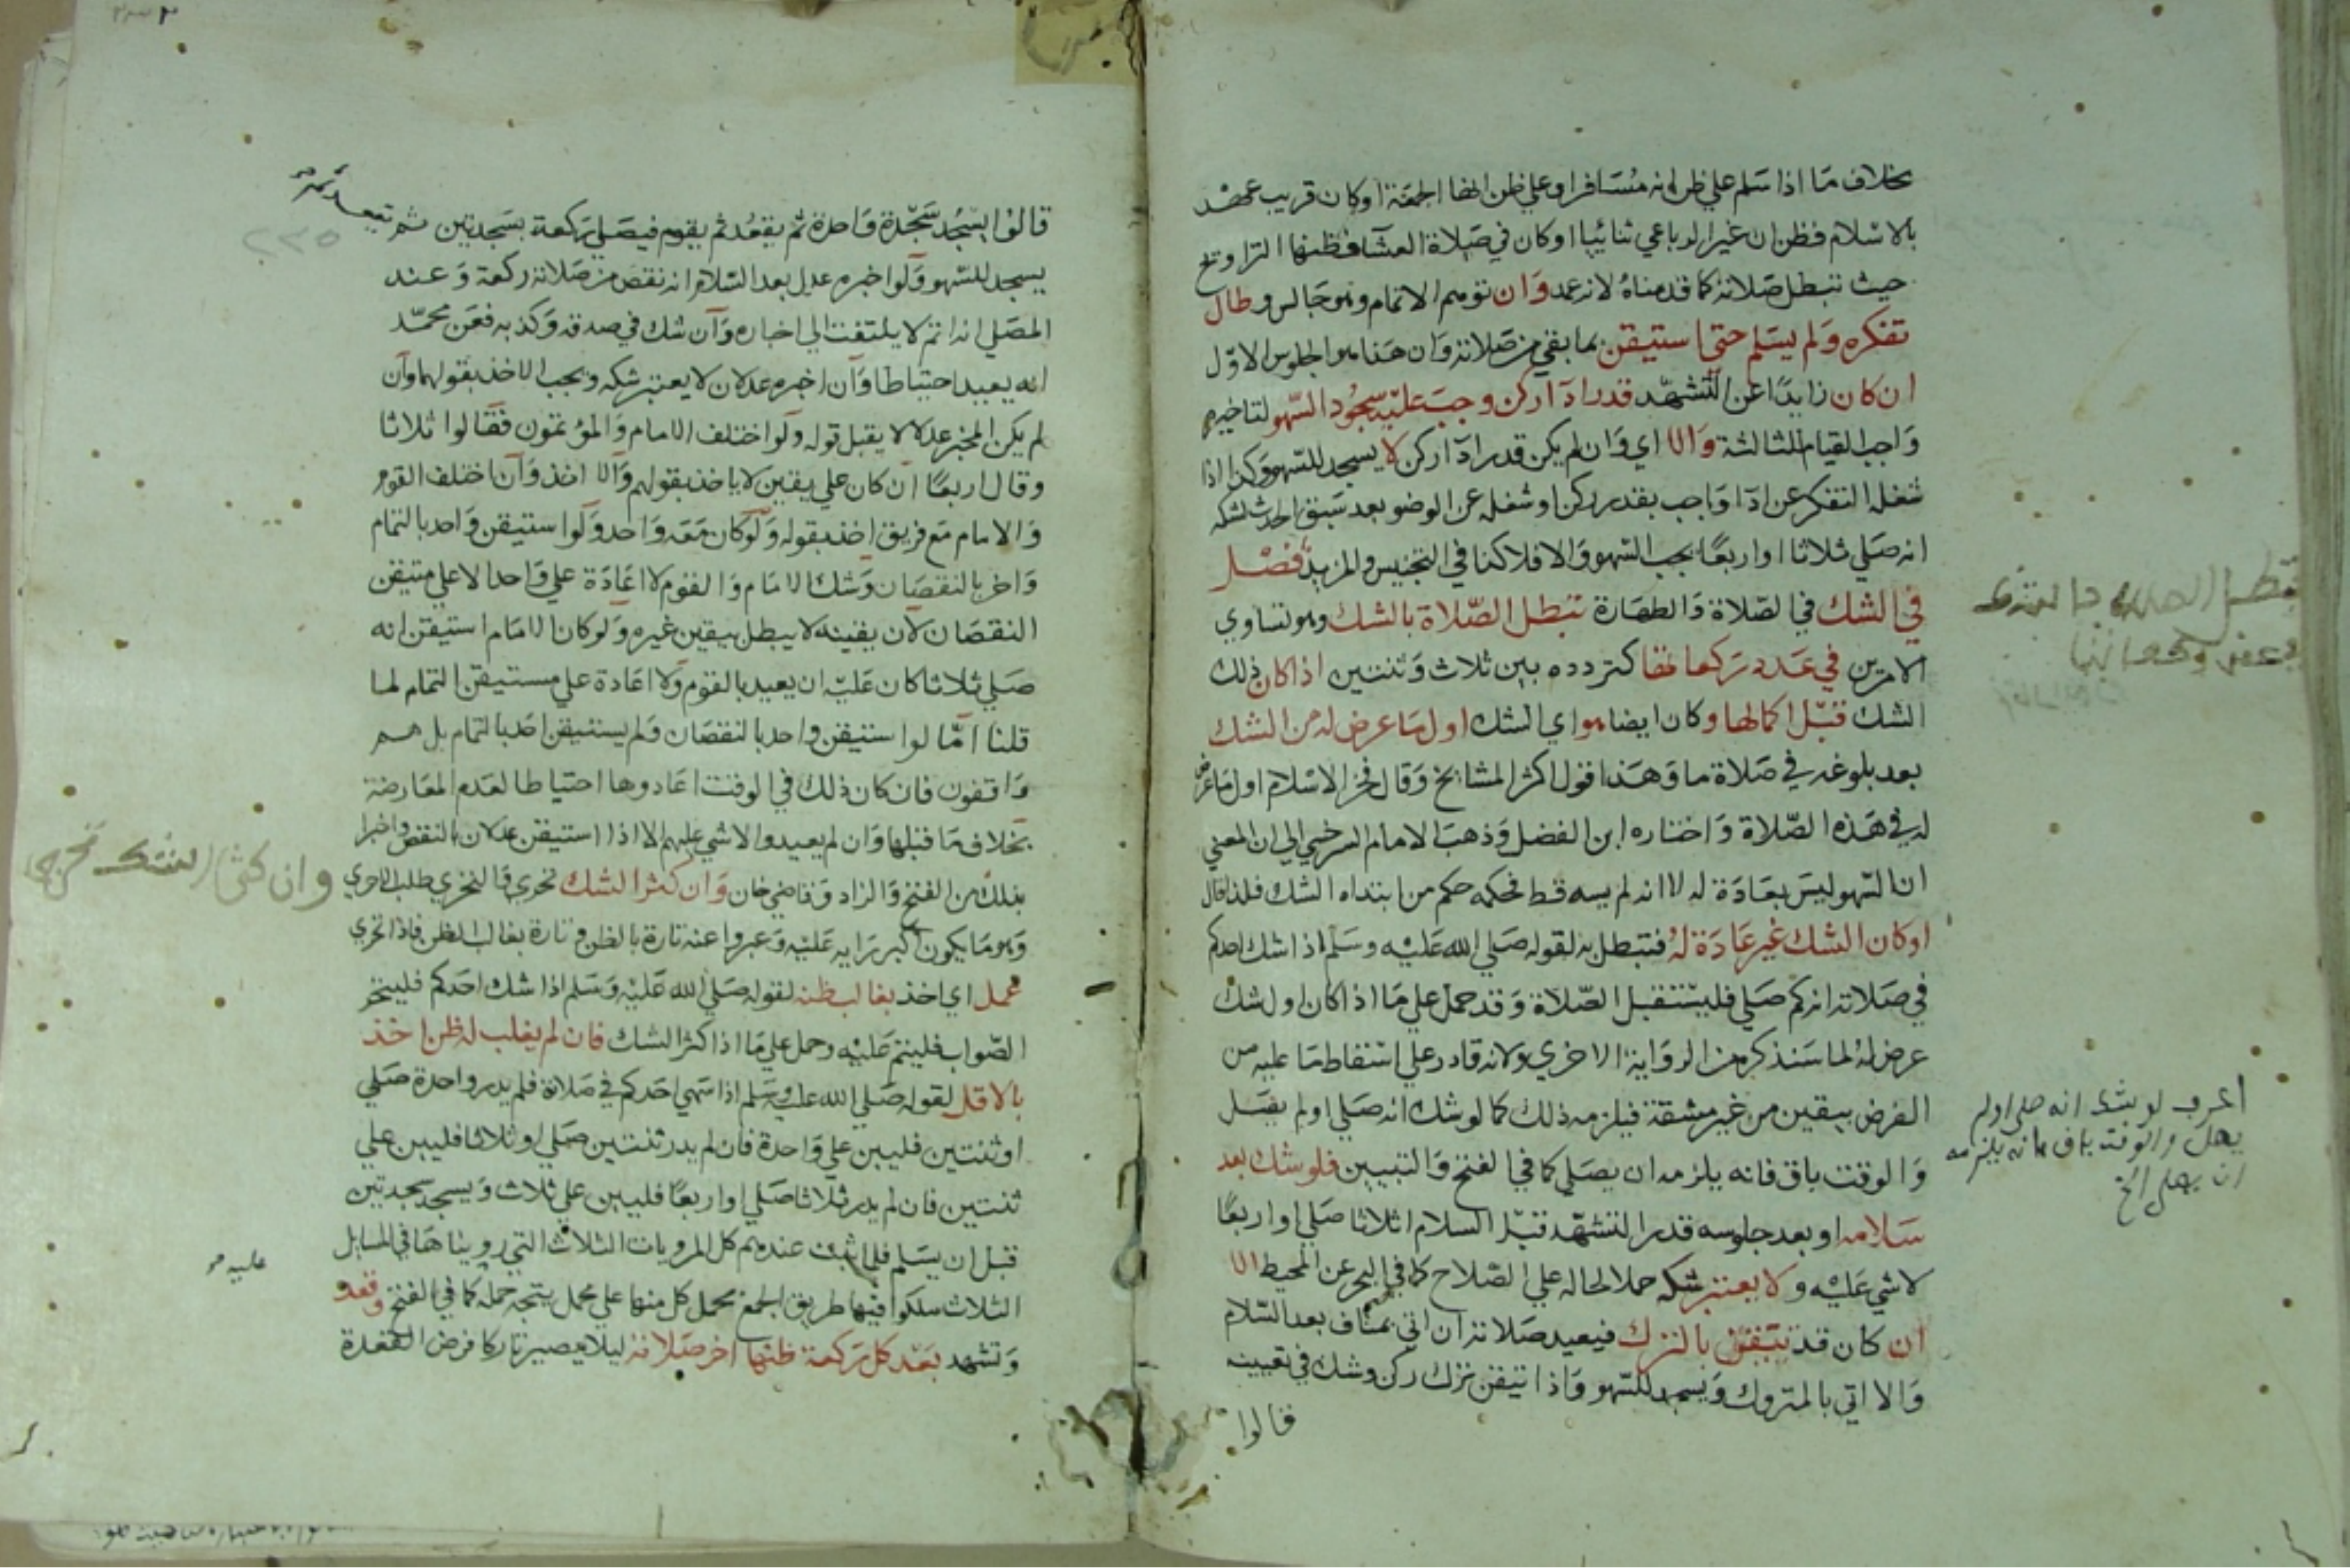 بخلاف ما اذا سلم علي ظن انه مسافر او علي ظن انها الجمعة او كان قريب عهد
بالاسلام فظن ان غير الرباعي ثنائيا او كان في صلاة العشا فظنها التراويح
حيث تبطل صلاته كما قدمناه لانه عمد وان توهم الاتمام وهو جالس وطال
تفكره ولم يسلم حتي استيقن بما بقي من صلاته وان هذا هو الجلوس الاول
ان كان زايدا عن التشهد قدر ادآ ركن وجب عليه سجود السهو لتاخيره
واجب القيام للثالثة والا اي وان لم يكن قدر ادآ ركن لا يسجد للسهو وكذا اذا
شغله التفكر عن ادآ واجب بقدر ركن او شغله عن الوضو بعد سبق الحدث لشكه
انه صلي ثلاثا او اربعا يجب السهو والا فلا كذا في التجنيس والمزيد فصل
في الشك في الصلاة والطهارة تبطل الصلاة بالشك وهو تساوي
الامرين في عدد ركعاتها كتردده بين ثلاث وثنتين اذا كان ذلك
الشك قبل اكمالها وكان ايضا هو اي الشك اول ما عرض له من الشك
بعد بلوغه في صلاة ما وهذا قول اكثر المشايخ وقال فخر الاسلام اول ما عرض
له في هذه الصلاة واختاره ابن الفضل وذهب الامام السرخسي الي ان المعني
ان السهو ليس بعادة له لا انه لم يسه قط فحكمه حكم من ابتداه الشك فلذا قال
او كان الشك غير عادة له فتبطل به لقوله صلي الله عليه وسلم اذا شك احدكم
في صلاته انه كم صلي فليستقبل الصلاة وقد حمل علي ما اذا كان اول شك
عرض له لما سنذكر من الرواية الاخري ولانه قادر علي اسقاط ما عليه من
الفرض بيقين من غير مشقة فيلزمه ذلك كما لو شك انه صلي او لم يصل
والوقت باق فانه يلزمه ان يصلي كما في الفتح والتبيين فلو شك بعد
سلامه او بعد جلوسه قدر التشهد قبل السلام اثلاثا صلي او اربعا
لا شي عليه ولا يعتبر شكه حملا لحاله علي الصلاح كما في البحر عن المحيط الا
ان كان قد تيقن بالترك فيعيد صلاته ان اتي بمناف بعد السلام
والا اتي بالمتروك ويسجد للسهو واذا تيقن ترك ركن وشك في تعيينه
قالوا
تبطل الصلاة بالشك
في عدد ركعاتها
اعرف لو شك انه صلي او لم
يصل والوقت باق فانه يلزمه
ان يصلي الخ
٢٣٥
قالوا يسجد سجدة واحدة ثم يقعد ثم يقوم فيصلي ركعة بسجدتين ثم يقعد
يسجد للسهو ولو اخبره عدل بعد السلام انه نقص من صلاته ركعة وعند
المصلي انه اتم لا يلتفت الي اخباره وان شك في صدقه وكذبه فعن محمد
انه يعيد احتياطا وان اخبره عدلان لا يعتبر شكه ويجب الاخذ بقولهما وان
لم يكن المخبر عدلا لا يقبل قوله ولو اختلف الامام والمؤتمون فقالوا ثلاثا
وقال اربعا ان كان علي يقين لا ياخذ بقولهم والا اخذ وان اختلف القوم
والامام مع فريق اخذ بقوله ولو كان معه واحد ولو استيقن واحد بالتمام
واخر بالنقصان وشك الامام والقوم لا اعادة علي واحد الا علي متيقن
النقصان لان يقينه لا يبطل بيقين غيره ولو كان الامام استيقن انه
صلي ثلاثا كان عليه ان يعيد بالقوم ولا اعادة علي مستيقن التمام لما
قلنا اما لو استيقن واحد بالنقصان ولم يستيقن احد بالتمام بل هم
واقفون فان كان ذلك في الوقت اعادوها احتياطا لعدم المعارضة
بخلاف ما قبلها وان لم يعيدوا لا شي عليهم الا اذا استيقن عدلان بالنقص واخبرا
بذلك من الفتح والزاد وقاضي خان وان كثر الشك تحري والتحري طلب الاحري
وهو ما يكون اكبر رايه عليه وعبروا عنه تارة بالظن وتارة بغالب الظن فاذا تحري
عمل اي اخذ بغالب ظنه لقوله صلي الله عليه وسلم اذا شك احدكم فليتحر
الصواب فليتم عليه وحمل علي ما اذا كثر الشك فان لم يغلب له ظن اخذ
بالاقل لقوله صلي الله عليه وسلم اذا سهي احدكم في صلاته فلم يدر واحدة صلي
او ثنتين فليبن علي واحدة فان لم يدر ثنتين صلي او ثلاثا فليبن علي
ثنتين فان لم يدر ثلاثا صلي او اربعا فليبن علي ثلاث ويسجد سجدتين
قبل ان يسلم فلما ثبت عندهم كل المرويات الثلاث التي رويناها في المسايل
الثلاث سلكوا فيها طريق الجمع بحمل كل منها علي محمل يتجه حمله كما في الفتح وقعد
وتشهد بعد كل ركعة ظنها اخر صلاته ليلا يصير تاركا فرض القعدة
وان كثر الشك تحري
عليه